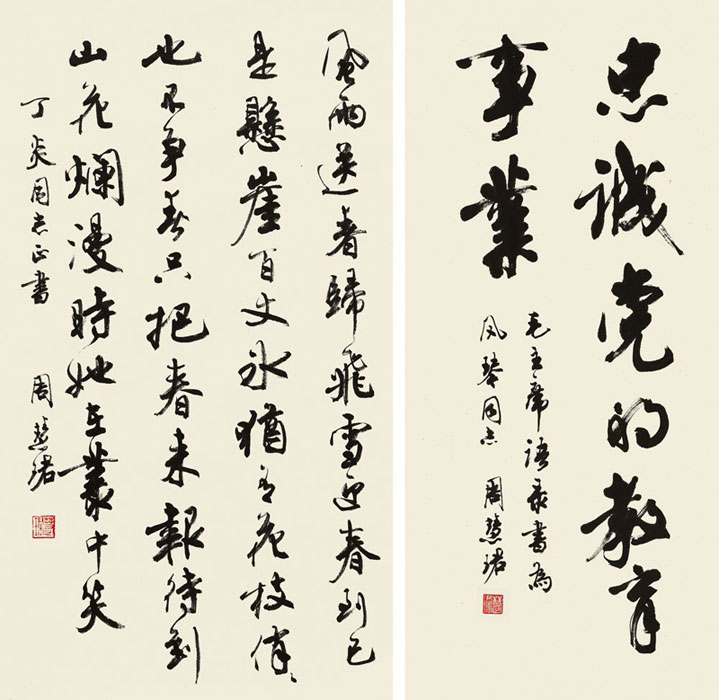 忠诚党的教育
事業
毛主席语录書為
风琴同志 周慧珺
風雨送春歸飛雪迎春到已
是懸崖百丈冰猶有花枝俏、
也不争春只把春来報待到
山花爛漫時她在叢中笑
丁炎同志正書 周慧珺